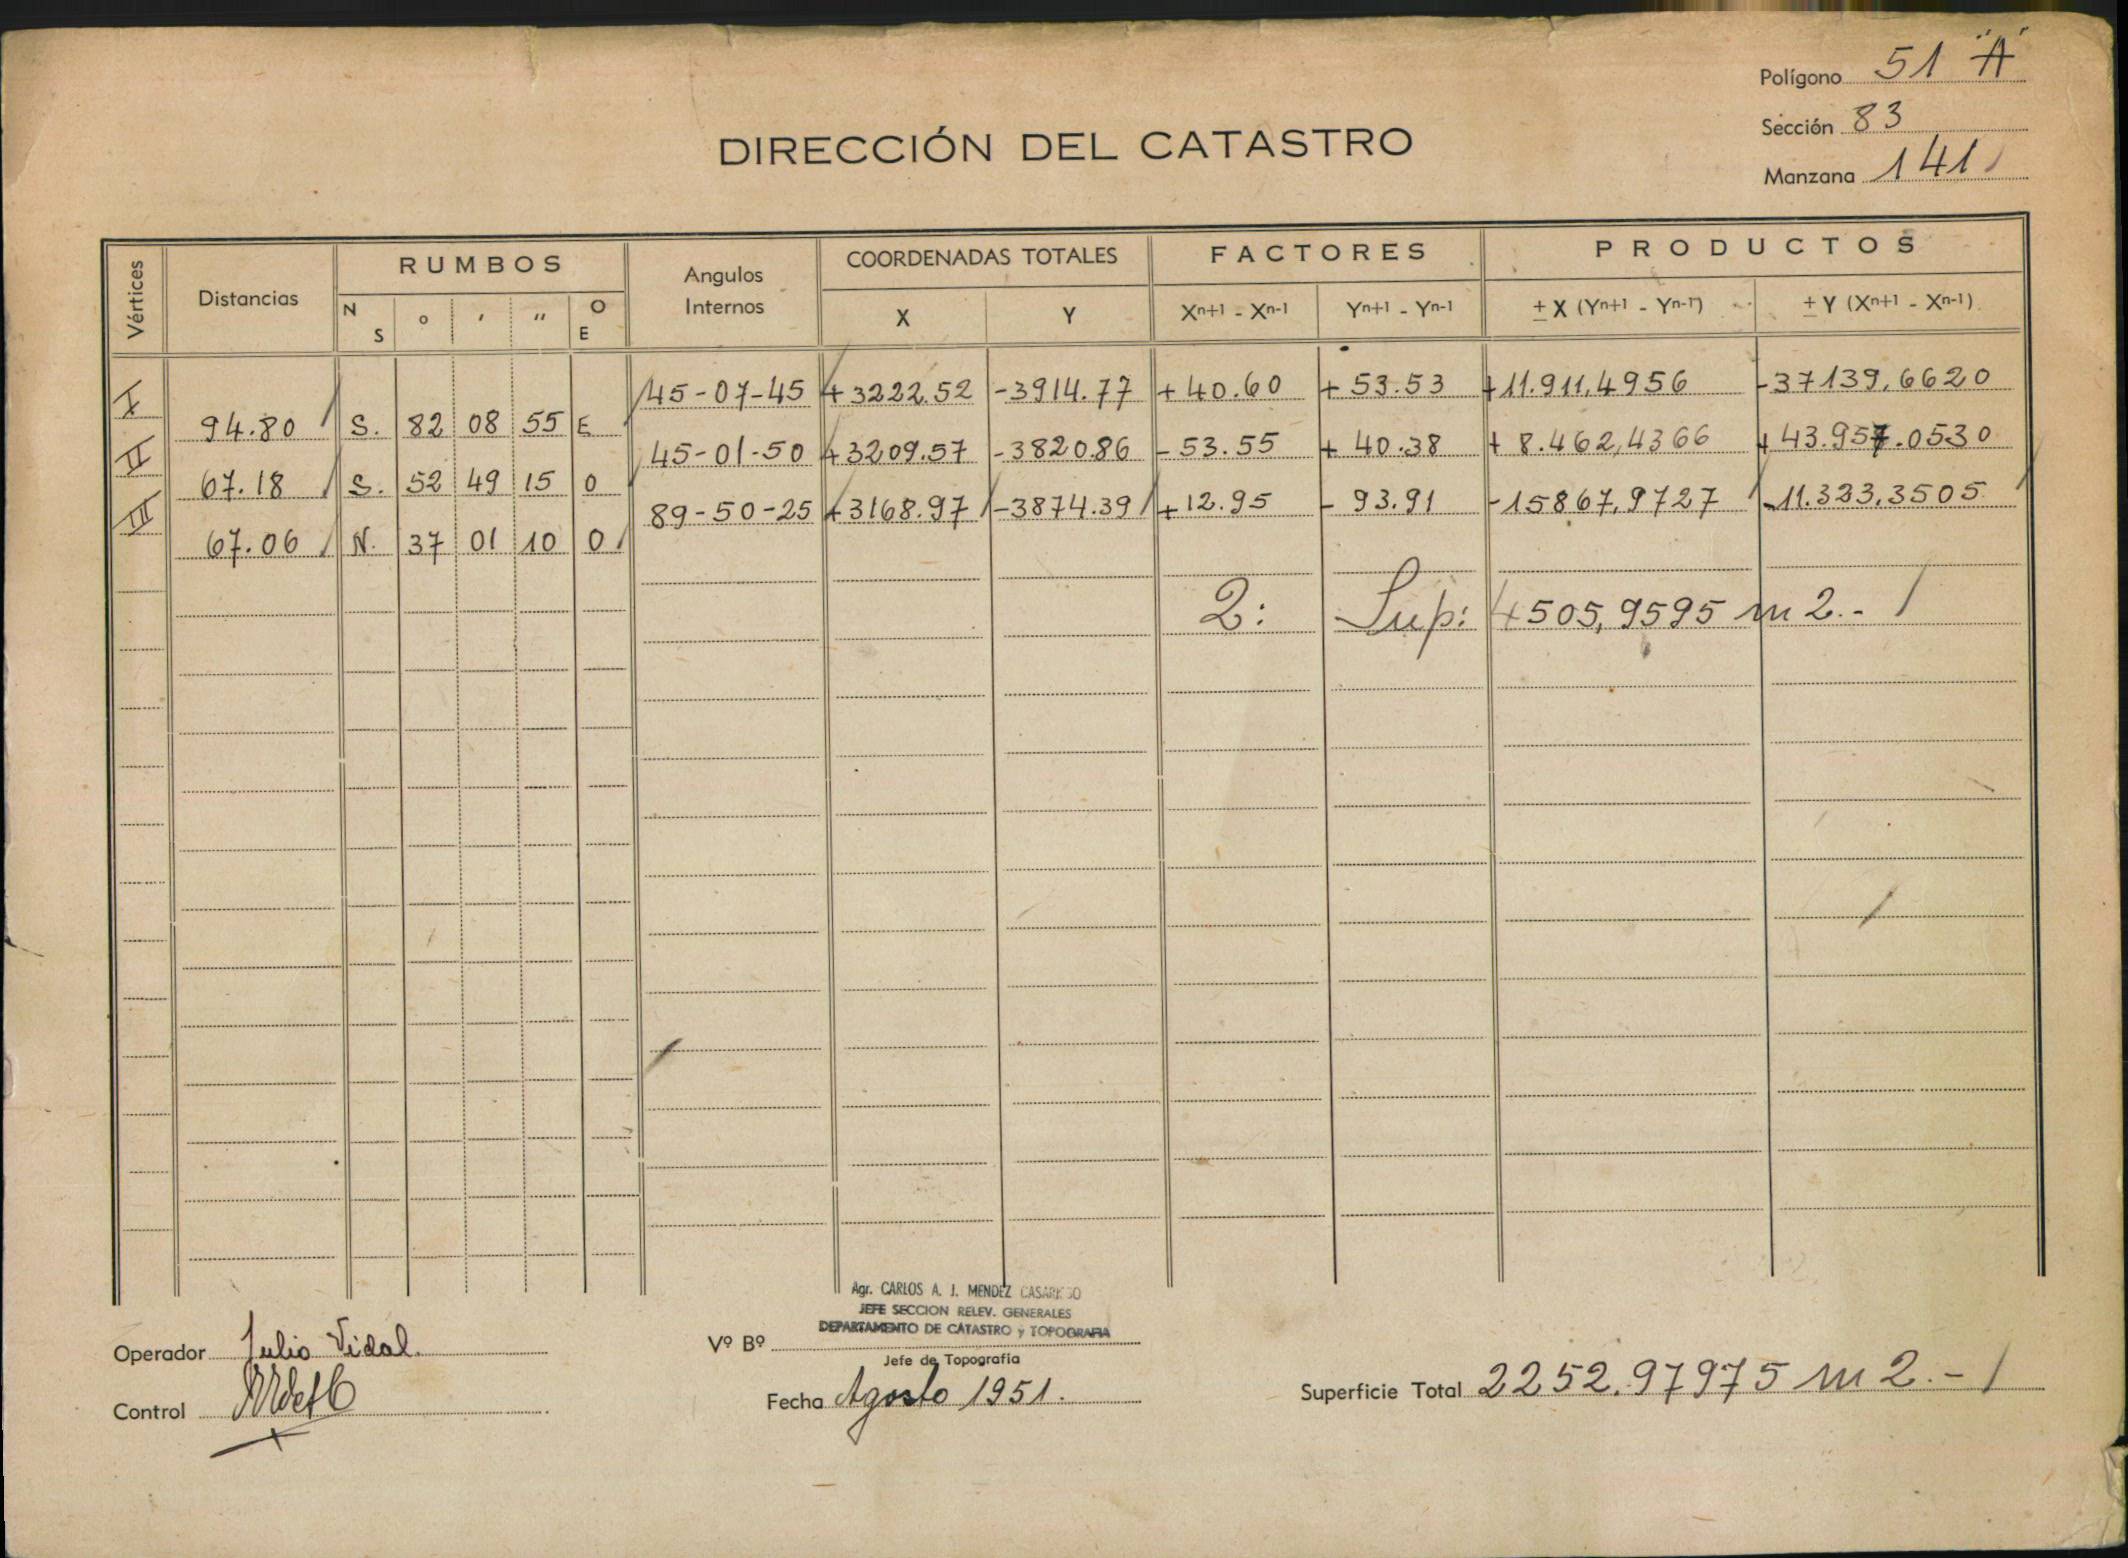 Polígono 51 "A"
Sección 83
Manzana 141
DIRECCIÓN DEL CATASTRO
Vértices Distancias RUMBOS Angulos Internos COORDENADAS TOTALES FACTORES PRODUCTOS
N S ° ' " O E X Y Xⁿ⁺¹ - Xⁿ⁻¹ Yⁿ⁺¹ - Yⁿ⁻¹ ± X (Yⁿ⁺¹ - Yⁿ⁻¹) ± Y (Xⁿ⁺¹ - Xⁿ⁻¹)
I 45-07-45 +3222.52 -3914.77 +40.60 +53.53 +11.911,4956 -37139,6620
94.80 S. 82 08 55 E
II 45-01-50 +3209.57 -3820.86 -53.55 +40.38 +8.462,4366 +43.957.0530
67.18 S. 52 49 15 O
III 89-50-25 +3168.97 -3874.39 +12.95 -93.91 -15867,9727 -11.323,3505
67.06 N. 37 01 10 O
2: Sup: 4505,9595 m2.-
Agr. CARLOS A. J. MENDEZ
JEFE SECCION RELEV. GENERALES
DEPARTAMENTO DE CATASTRO y TOPOGRAFIA
Operador Julio Vidal.
Vº Bº
Jefe de Topografía
Control
Fecha Agosto 1951.
Superficie Total 2252.97975 m2.-